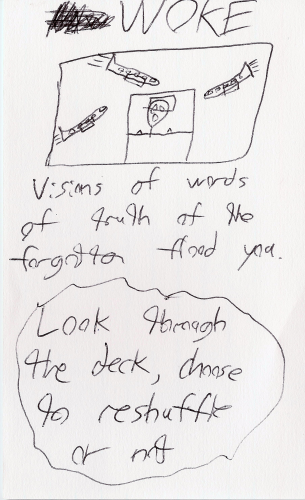 WOKE
Visions of words
of truth of the
forgotton flood you.
Look through
the deck, choose
to reshuffle
or not